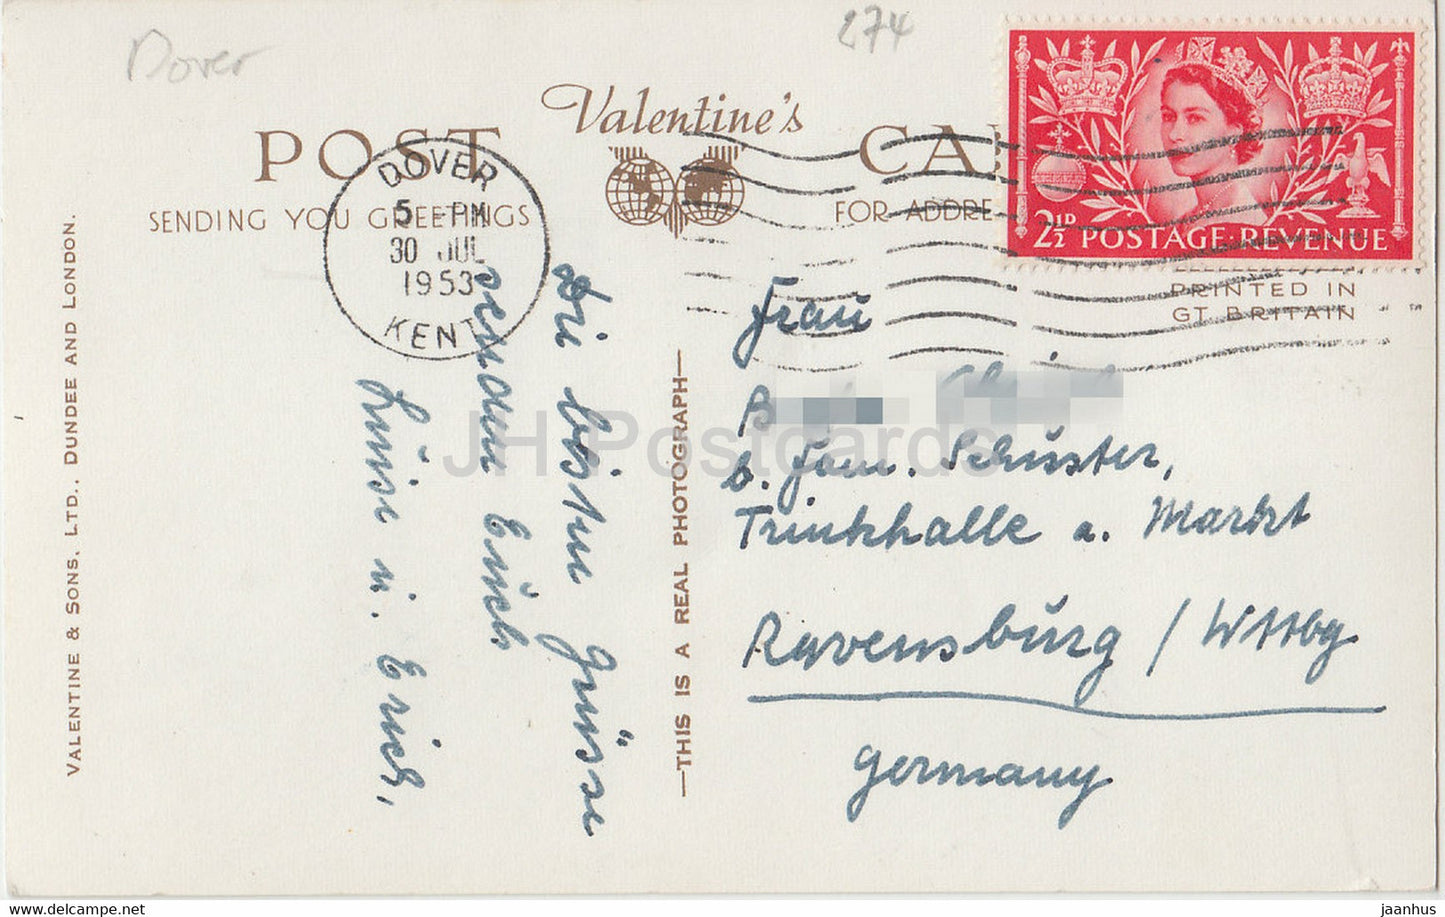 Dover
274
Valentine's
POST CA
SENDING YOU GREETINGS
FOR ADDRE
DOVER
5 - PM
30 JUL
1953
KENT
2½D POSTAGE REVENUE
PRINTED IN
GT BRITAIN
VALENTINE & SONS. LTD., DUNDEE AND LONDON.
—THIS IS A REAL PHOTOGRAPH—
Die besten Grüsse
senden Euch
Luise u. Erich.
Frau
B
b. Fam. Schuster,
Trinkhalle a. Markt
Ravensburg / Wttbg
Germany
JH Postcards
https://www.delcampe.net
jaanhus